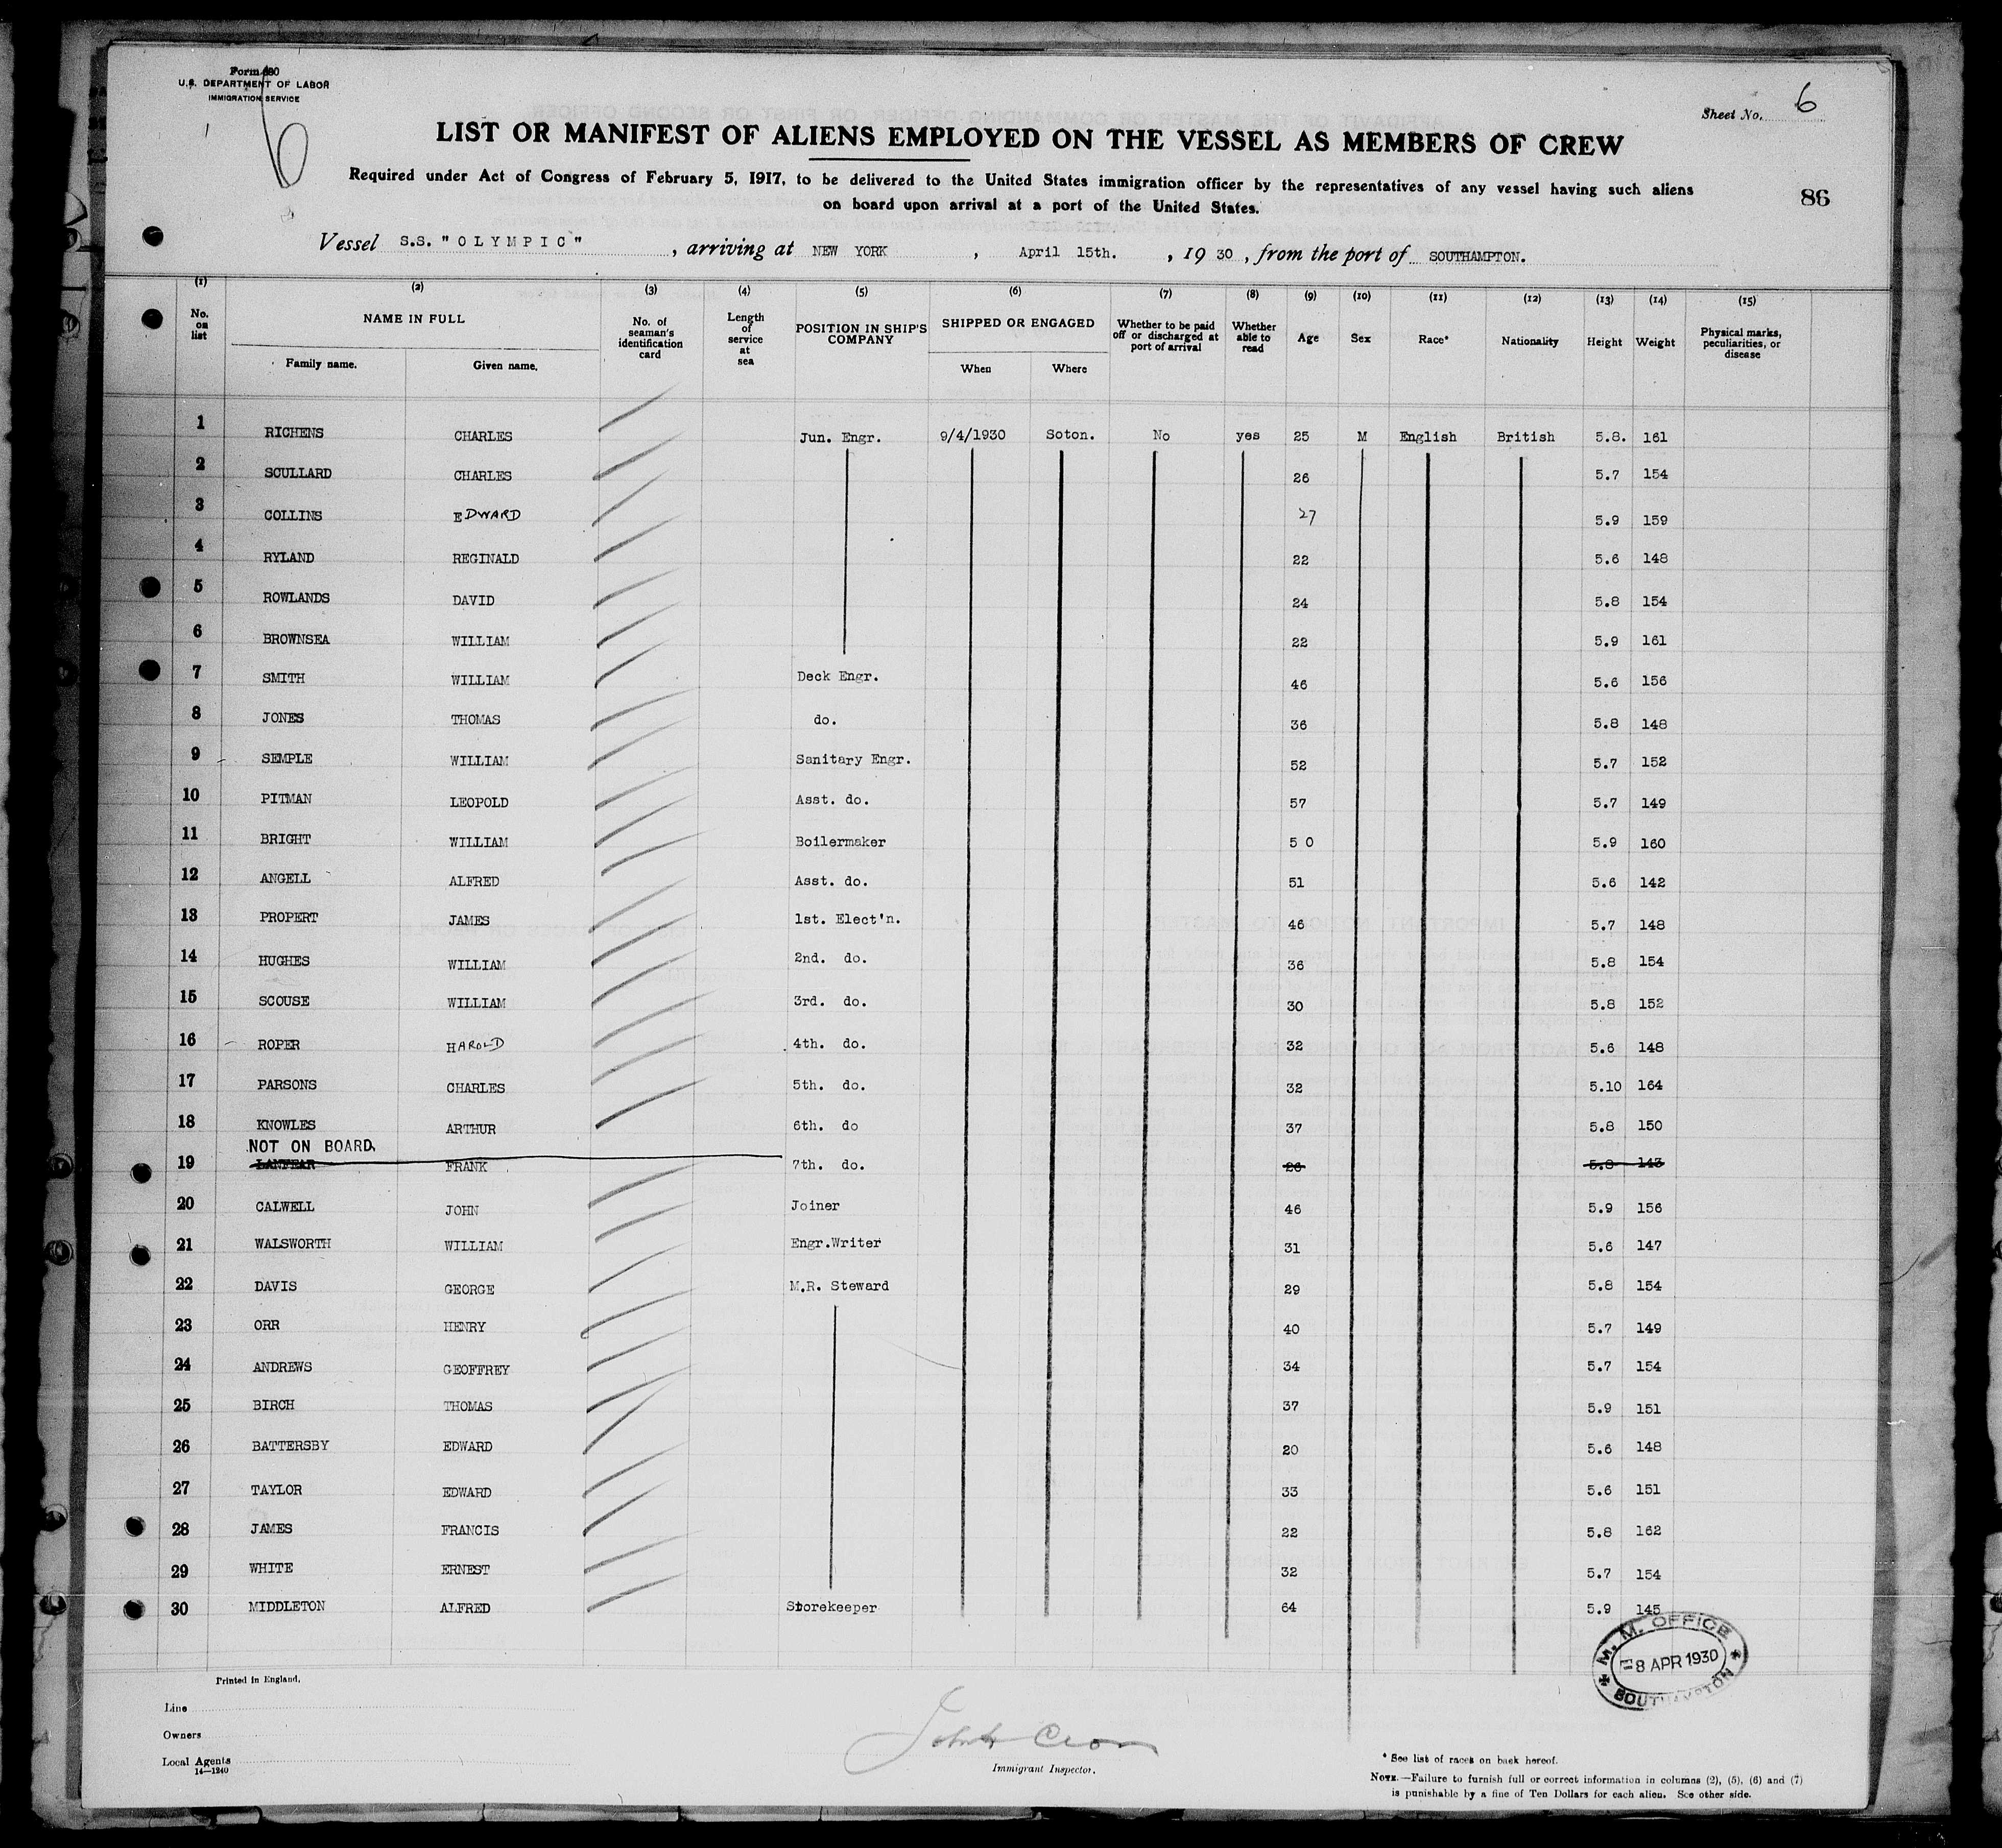 Form 680
U.S. DEPARTMENT OF LABOR
IMMIGRATION SERVICE
6
Sheet No. 6
LIST OR MANIFEST OF ALIENS EMPLOYED ON THE VESSEL AS MEMBERS OF CREW
Required under Act of Congress of February 5, 1917, to be delivered to the United States immigration officer by the representatives of any vessel having such aliens
on board upon arrival at a port of the United States.
86
Vessel S.S. "OLYMPIC", arriving at NEW YORK, April 15th., 1930, from the port of SOUTHAMPTON.
(1) (2) (3) (4) (5) (6) (7) (8) (9) (10) (11) (12) (13) (14) (15)
No. on list NAME IN FULL Family name. Given name. No. of seaman's identification card Length of service at sea POSITION IN SHIP'S COMPANY SHIPPED OR ENGAGED When Where Whether to be paid off or discharged at port of arrival Whether able to read Age Sex Race* Nationality Height Weight Physical marks, peculiarities, or disease
1 RICHENS CHARLES Jun. Engr. 9/4/1930 Soton. No yes 25 M English British 5.8. 161
2 SCULLARD CHARLES 26 5.7 154
3 COLLINS EDWARD 27 5.9 159
4 RYLAND REGINALD 22 5.6 148
5 ROWLANDS DAVID 24 5.8 154
6 BROWNSEA WILLIAM 22 5.9 161
7 SMITH WILLIAM Deck Engr. 46 5.6 156
8 JONES THOMAS do. 36 5.8 148
9 SEMPLE WILLIAM Sanitary Engr. 52 5.7 152
10 PITMAN LEOPOLD Asst. do. 57 5.7 149
11 BRIGHT WILLIAM Boilermaker 5 0 5.9 160
12 ANGELL ALFRED Asst. do. 51 5.6 142
13 PROPERT JAMES 1st. Elect'n. 46 5.7 148
14 HUGHES WILLIAM 2nd. do. 36 5.8 154
15 SCOUSE WILLIAM 3rd. do. 30 5.8 152
16 ROPER HAROLD 4th. do. 32 5.6 148
17 PARSONS CHARLES 5th. do. 32 5.10 164
18 KNOWLES ARTHUR 6th. do 37 5.8 150
NOT ON BOARD.
19 LANFEAR FRANK 7th. do. 26 5.8 143
20 CALWELL JOHN Joiner 46 5.9 156
21 WALSWORTH WILLIAM Engr.Writer 31 5.6 147
22 DAVIS GEORGE M.R. Steward 29 5.8 154
23 ORR HENRY 40 5.7 149
24 ANDREWS GEOFFREY 34 5.7 154
25 BIRCH THOMAS 37 5.9 151
26 BATTERSBY EDWARD 20 5.6 148
27 TAYLOR EDWARD 33 5.6 151
28 JAMES FRANCIS 22 5.8 162
29 WHITE ERNEST 32 5.7 154
30 MIDDLETON ALFRED Storekeeper 64 5.9 145
M. M. OFFICE
8 APR 1930
SOUTHAMPTON
Printed in England.
Line
Owners
Local Agents
14—1240
Immigrant Inspector.
* See list of races on back hereof.
NOTE.—Failure to furnish full or correct information in columns (2), (5), (6) and (7)
is punishable by a fine of Ten Dollars for each alien. See other side.